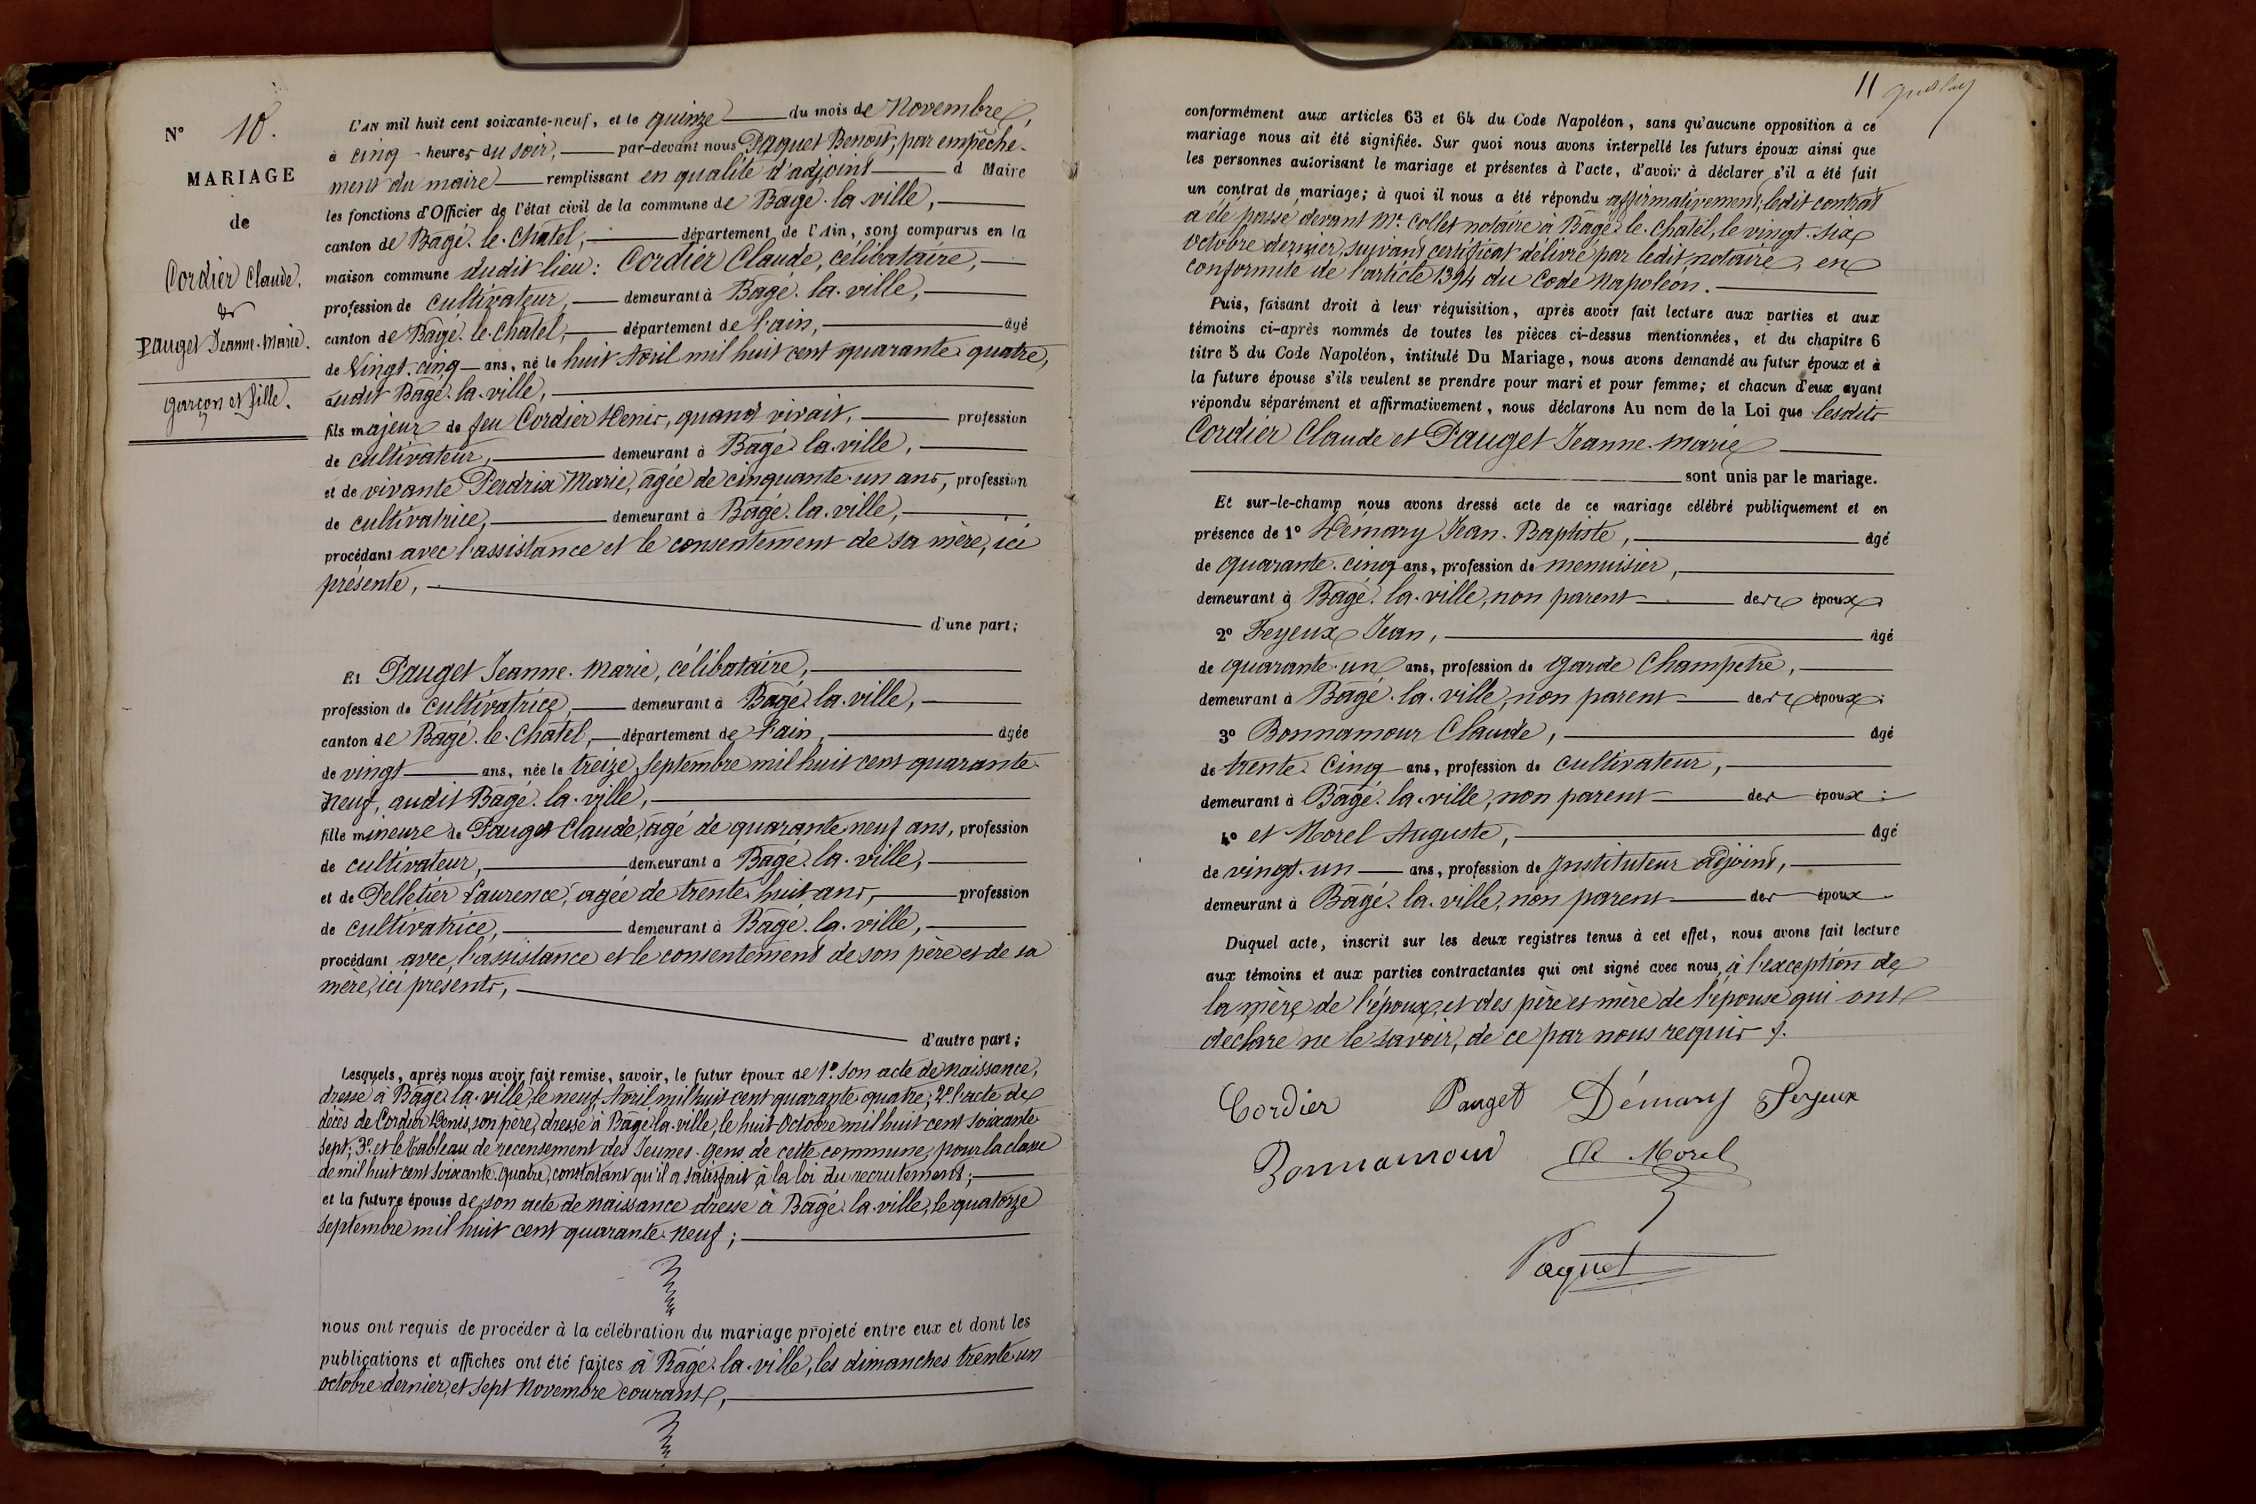 N° 10.
MARIAGE
de
Cordier Claude.
&
Pauget Jeanne-Marie.
garçon et fille.
L'AN mil huit cent soixante-neuf, et le quinze du mois de Novembre,
à cinq heures du soir, par-devant nous Paquet Benoit, par empêche-
ment du maire remplissant en qualité d'adjoint à Maire
les fonctions d'Officier de l'état civil de la commune de Bâgé-la-ville,
canton de Bâgé-le-Chatel, département de l'Ain, sont comparus en la
maison commune dudit lieu: Cordier Claude, célibataire,
profession de cultivateur, demeurant à Bâgé-la-ville,
canton de Bâgé-le-Chatel, département de l'ain, âgé
de Vingt-cinq ans, né le huit Avril mil huit cent quarante-quatre,
audit Bâgé-la-ville,
fils majeur de feu Cordier Denis, quand vivait, profession
de cultivateur, demeurant à Bâgé-la-ville,
et de vivante Perdrix Marie, âgée de cinquante-un ans, profession
de cultivatrice, demeurant à Bâgé-la-ville,
procédant avec l'assistance et le consentement de sa mère, ici
présente,
d'une part;
Et Pauget Jeanne-Marie, célibataire,
profession de cultivatrice, demeurant à Bâgé-la-ville,
canton de Bâgé-le-Chatel, département de l'ain, âgée
de vingt ans, née le treize septembre mil huit cent quarante-
neuf, audit Bâgé-la-ville,
fille mineure de Pauget Claude, âgé de quarante-neuf ans, profession
de cultivateur, demeurant à Bâgé-la-ville,
et de Pelletier Laurence, âgée de trente-huit ans, profession
de cultivatrice, demeurant à Bâgé-la-ville,
procédant avec l'assistance et le consentement de son père et de sa
mère, ici présents,
d'autre part;
Lesquels, après nous avoir fait remise, savoir, le futur époux de 1° son acte de naissance,
dressé à Bâgé-la-ville, le neuf Avril mil huit cent quarante-quatre, 2° l'acte de
décès de Cordier Denis, son père, dressé à Bâgé-la-ville, le huit Octobre mil huit cent soixante-
sept; 3° et le tableau de recensement des Jeunes-gens de cette commune, pour la classe
de mil huit cent soixante-quatre, constatant qu'il a satisfait à la loi du recrutement;
et la future épouse de son acte de naissance dressé à Bâgé-la-ville, le quatorze
septembre mil huit cent quarante-neuf;
nous ont requis de procéder à la célébration du mariage projeté entre eux et dont les
publications et affiches ont été faites à Bâgé-la-ville, les dimanches trente un
octobre dernier, et sept Novembre courant,
11
conformément aux articles 63 et 64 du Code Napoléon, sans qu'aucune opposition à ce
mariage nous ait été signifiée. Sur quoi nous avons interpellé les futurs époux ainsi que
les personnes autorisant le mariage et présentes à l'acte, d'avoir à déclarer s'il a été fait
un contrat de mariage; à quoi il nous a été répondu affirmativement, ledit contrat
a été passé devant Mr Collet notaire à Bâgé-le-Chatel, le vingt-six
octobre dernier, suivant certificat délivré par ledit notaire, en
conformité de l'article 1394 du Code Napoléon.
Puis, faisant droit à leur réquisition, après avoir fait lecture aux parties et aux
témoins ci-après nommés de toutes les pièces ci-dessus mentionnées, et du chapitre 6
titre 5 du Code Napoléon, intitulé Du Mariage, nous avons demandé au futur époux et à
la future épouse s'ils veulent se prendre pour mari et pour femme; et chacun d'eux ayant
répondu séparément et affirmativement, nous déclarons Au nom de la Loi que lesdits
Cordier Claude et Pauget Jeanne-Marie
sont unis par le mariage.
Et sur-le-champ nous avons dressé acte de ce mariage célébré publiquement et en
présence de 1° Démary Jean-Baptiste, âgé
de quarante-cinq ans, profession de menuisier,
demeurant à Bâgé-la-ville, non parent des époux
2° Feyeux Jean, âgé
de quarante-un ans, profession de garde champetre,
demeurant à Bâgé-la-ville, non parent des époux
3° Bonnamour Claude, âgé
de trente-cinq ans, profession de cultivateur,
demeurant à Bâgé-la-ville, non parent des époux:
4° et Morel Auguste, âgé
de vingt-un ans, profession de Instituteur adjoint,
demeurant à Bâgé-la-ville, non parent des époux.
Duquel acte, inscrit sur les deux registres tenus à cet effet, nous avons fait lecture
aux témoins et aux parties contractantes qui ont signé avec nous, à l'exception de
la mère de l'époux, et des père et mère de l'épouse qui ont
déclaré ne le savoir, de ce par nous requis.
Cordier Pauget Démary Feyeux
Bonnamour A Morel
Paquet